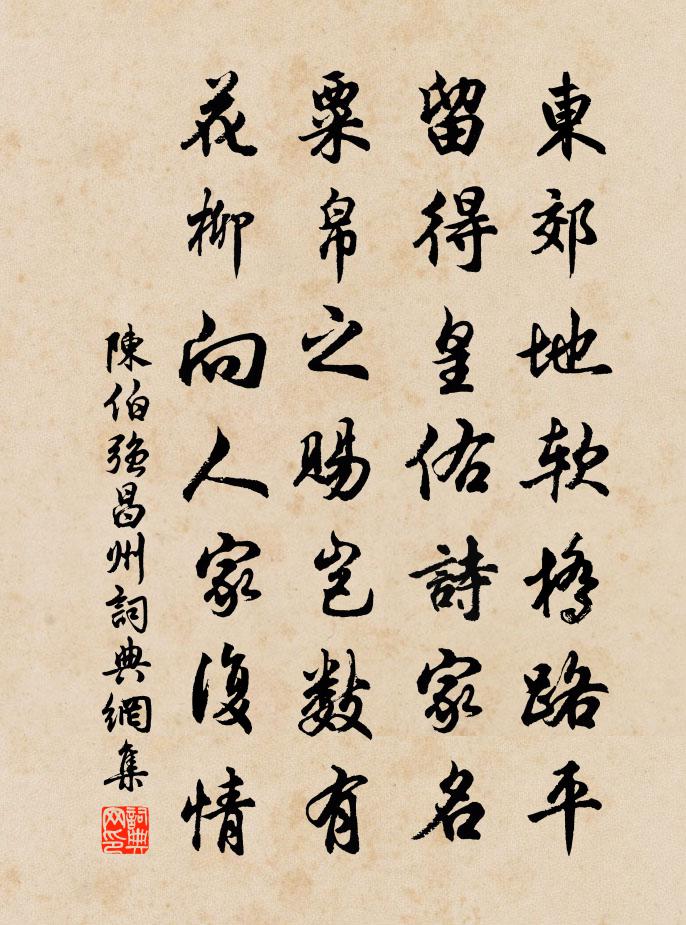 東郊地软橋路平
留得皇佑詩家名
粟帛之賜豈數有
花柳向人家復情
陳伯强昌州詞典網集
詞典网印